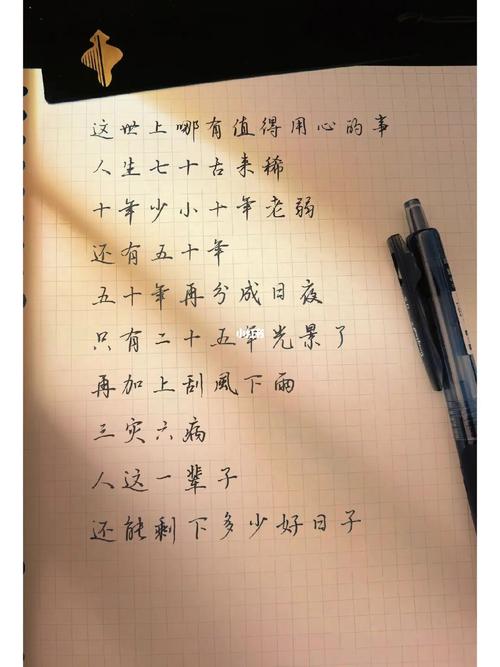 这世上哪有值得用心的事
人生七十古来稀
十年少小十年老弱
还有五十年
五十年再分成日夜
只有二十五年光景了
再加上刮風下雨
三灾六病
人这一辈子
还能剩下多少好日子
小红书